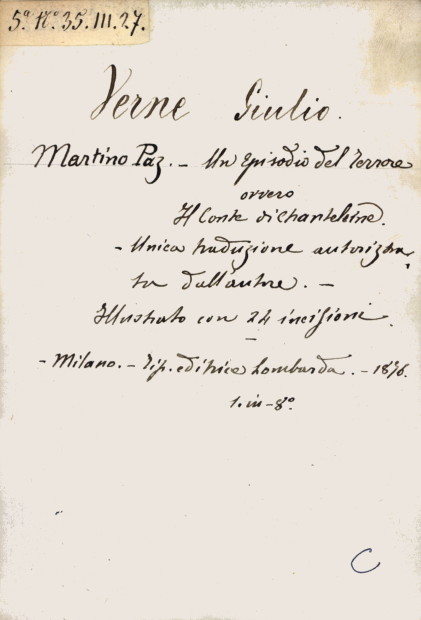 5ª. Nº. 35. III. 27.
Verne Giulio.
Martino Paz. - Un Episodio del Terrore
ovvero
Il Conte di Chanteleine.
- Unica traduzione autorizza-
ta dall'autore. -
Illustrato con 24 incisioni.
- Milano. - Tip. editrice Lombarda. - 1876.
1. in-8º
C